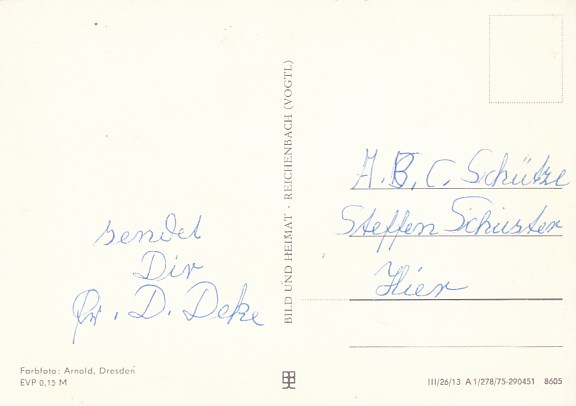 sendet
Dir
D. Deke
A.B.C. Schütze
Steffen Schuster
Hier
BILD UND HEIMAT · REICHENBACH (VOGTL)
Farbfoto: Arnold, Dresden
EVP 0,15 M
III/26/13 A 1/278/75-290451 8605